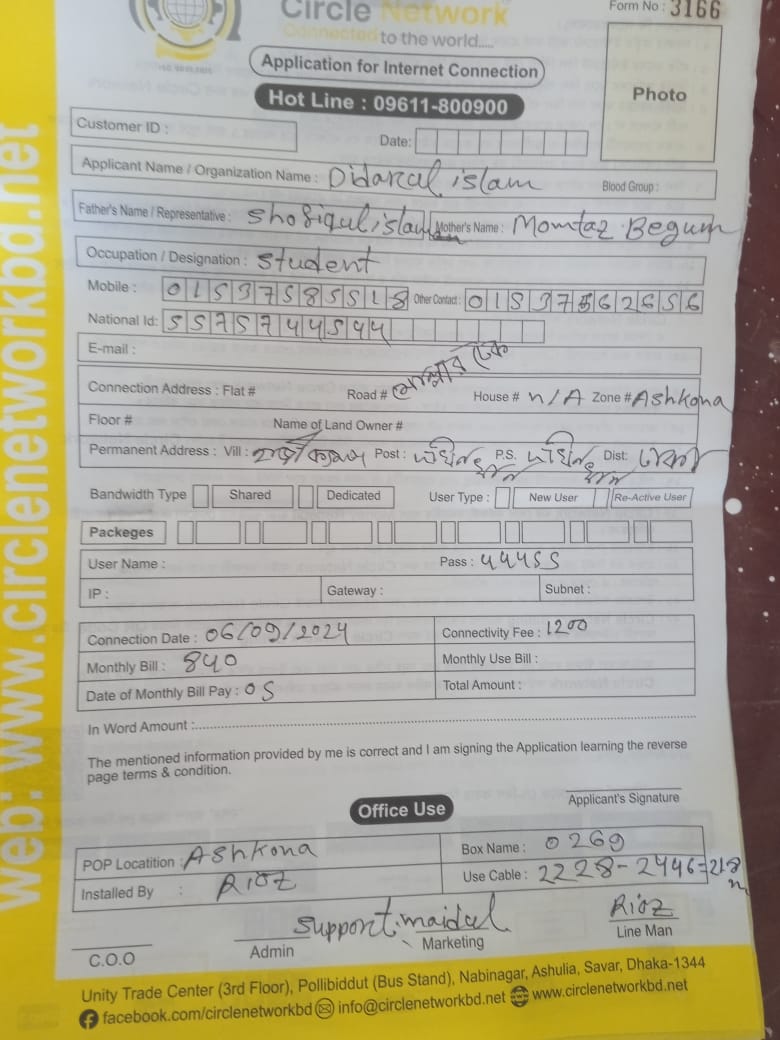 Circle Network
Form No : 3166
Connected to the world.....
Application for Internet Connection
Photo
Hot Line : 09611-800900
Customer ID :
Date:
Applicant Name / Organization Name : Didarul islam Blood Group :
Father's Name / Representative : Shofiqul islam Mother's Name : Momtaz Begum
Occupation / Designation : Student
Mobile : 01537585518 Other Contact : 01537562656
National Id: 5575744544
E-mail :
Connection Address : Flat # Road # House # n/A Zone # Ashkona
Floor # Name of Land Owner #
Permanent Address : Vill : Post : P.S. Dist:
Bandwidth Type Shared Dedicated User Type : New User Re-Active User
Packeges
User Name : Pass : 44455
IP : Gateway : Subnet :
Connection Date : 06/09/2024 Connectivity Fee : 1200
Monthly Bill : 840 Monthly Use Bill :
Date of Monthly Bill Pay : 05 Total Amount :
In Word Amount :
The mentioned information provided by me is correct and I am signing the Application learning the reverse
page terms & condition.
Applicant's Signature
Office Use
POP Locatition : Ashkona Box Name : 0269
Installed By : Rioz Use Cable : 2228-2446=218 m
Support. Rioz
C.O.O Admin Marketing Line Man
Unity Trade Center (3rd Floor), Pollibiddut (Bus Stand), Nabinagar, Ashulia, Savar, Dhaka-1344
facebook.com/circlenetworkbd info@circlenetworkbd.net www.circlenetworkbd.net
web: www.circlenetworkbd.net